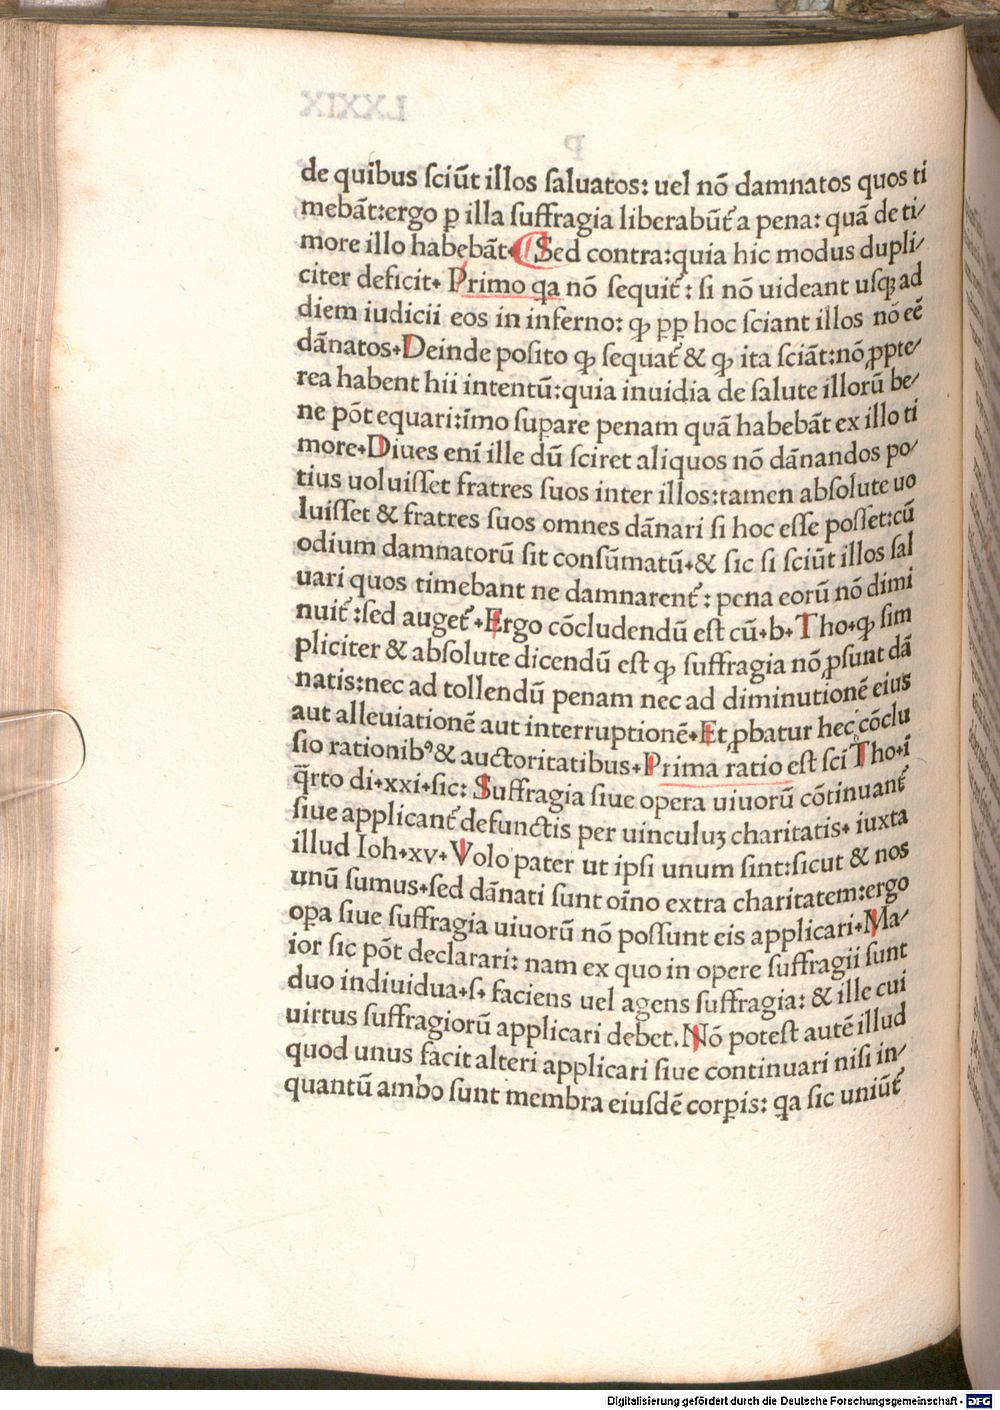 de quibus sciūt illos saluatos: uel nō damnatos quos ti
mebāt:ergo ꝑ illa suffragia liberabūt᷑ a pena: quā de ti/
more illo habebāt. Sed contra:quia hic modus dupli/
citer deficit. Primo qa nō sequit᷑: si nō uideant usqꝫ ad
diem iudicii eos in inferno: ꝙ ꝓꝑ hoc sciant illos nō eē
dānatos. Deinde posito ꝙ sequat᷑ & ꝙ ita sciāt:nō ꝓpte/
rea habent hii intentū:quia inuidia de salute illorū be/
ne pōt equari:īmo suꝑare penam quā habebāt ex illo ti
more. Diues enī ille dū sciret aliquos nō dānandos po/
tius uoluisset fratres suos inter illos:tamen absolute uo
luisset & fratres suos omnes dānari si hoc esse posset:cū
odium damnatorū sit consūmatū. & sic si sciūt illos sal
uari quos timebant ne damnarent᷑: pena eorū nō dimi
nuit᷑: sed auget᷑. Ergo cōcludendū est cū.b. Tho. ꝙ sim
pliciter & absolute dicendū est ꝙ suffragia nō ꝓsunt dā
natis:nec ad tollendū penam nec ad diminutionē eius
aut alleuiationē aut interruptionē. Et ꝓbatur hec cōclu
sio rationibꝰ & auctoritatibus. Prima ratio est sci Tho.ī
q̄rto di.xxi.sic: Suffragia siue opera uiuorū cōtinuant᷑
siue applicant᷑ defunctis per uinculuꝫ charitatis. iuxta
illud Ioh.xv. Volo pater ut ipsi unum sint:sicut & nos
unū sumus.sed dānati sunt oīno extra charitatem:ergo
oꝑa siue suffragia uiuorū nō possunt eis applicari. Ma/
ior sic pōt declarari: nam ex quo in opere suffragii sunt
duo indiuidua.s. faciens uel agens suffragia: & ille cui
uirtus suffragiorū applicari debet. Nō potest autē illud
quod unus facit alteri applicari siue continuari nisi in/
quantū ambo sunt membra eiusdē corꝑis: qa sic uniūt᷑
Digitalisierung gefördert durch die Deutsche Forschungsgemeinschaft - DFG